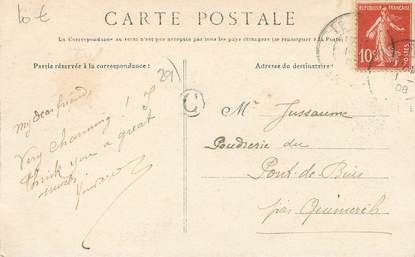 CARTE POSTALE
La Correspondance au recto n'est pas acceptée par tous les pays étrangers (se renseigner à la Poste)
Partie réservée à la correspondance :
Adresse du destinataire :
RÉPUBLIQUE FRANÇAISE
10c
POSTES
C
201
My dear friend
Very charming! I
think you a great
Mr Jussaume
Poudrerie du
Pont-de-Buis
par Quimerch